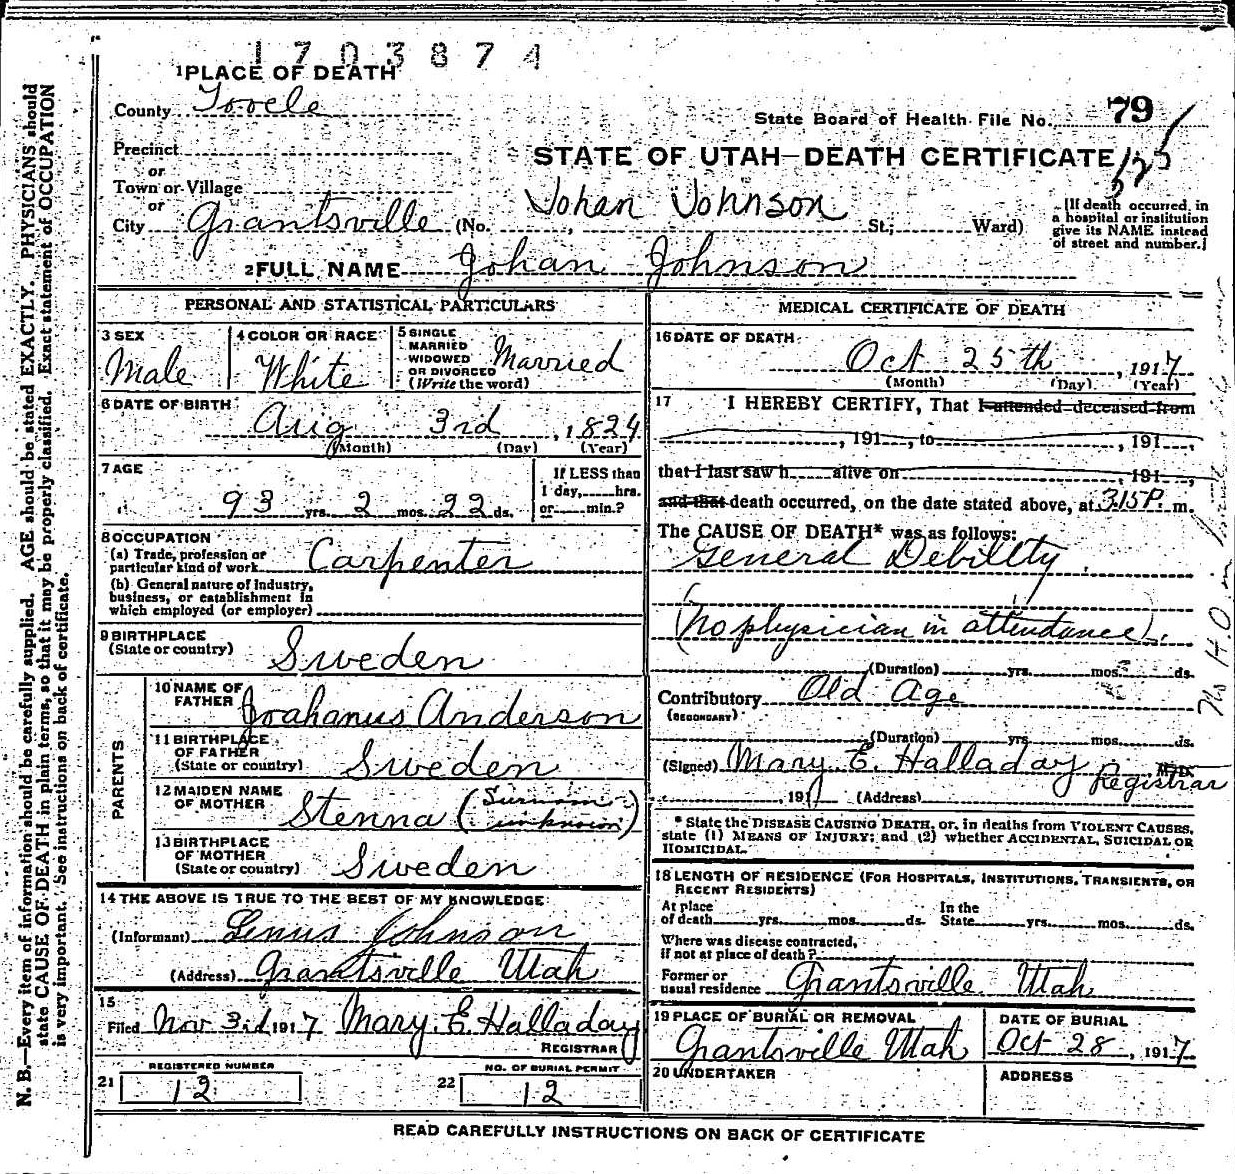 1703874
1 PLACE OF DEATH
County Tooele
State Board of Health File No. 79
Precinct
or
STATE OF UTAH—DEATH CERTIFICATE 125
Town or Village
or
Johan Johnson
City Grantsville (No. , St.; Ward)
[If death occurred, in
a hospital or institution
give its NAME instead
of street and number.]
2 FULL NAME Johan Johnson
PERSONAL AND STATISTICAL PARTICULARS
3 SEX
Male
4 COLOR OR RACE
White
5 SINGLE
MARRIED
WIDOWED
OR DIVORCED
(Write the word)
Married
6 DATE OF BIRTH
Aug 3rd , 1824
(Month) (Day) (Year)
7 AGE
93 yrs. 2 mos. 22 ds.
If LESS than
1 day, hrs.
or min.?
8 OCCUPATION
(a) Trade, profession or
particular kind of work Carpenter
(b) General nature of industry,
business, or establishment in
which employed (or employer)
9 BIRTHPLACE
(State or country) Sweden
PARENTS
10 NAME OF
FATHER Joahanus Anderson
11 BIRTHPLACE
OF FATHER
(State or country) Sweden
12 MAIDEN NAME
OF MOTHER Stenna (Surname unknown)
13 BIRTHPLACE
OF MOTHER
(State or country) Sweden
14 THE ABOVE IS TRUE TO THE BEST OF MY KNOWLEDGE:
(Informant) Lenus Johnson
(Address) Grantsville Utah
15
Filed Nov 3rd 1917 Mary E. Halladay
REGISTRAR
21 REGISTERED NUMBER
12
22 NO. OF BURIAL PERMIT
12
MEDICAL CERTIFICATE OF DEATH
16 DATE OF DEATH
Oct 25th , 1917
(Month) (Day) (Year)
17 I HEREBY CERTIFY, That I attended deceased from
, 191 , to , 191 ,
that I last saw h alive on , 191 ,
and that death occurred, on the date stated above, at 3.15 P. m.
The CAUSE OF DEATH* was as follows:
General Debility
(No physician in attendance).
(Duration) yrs. mos. ds.
Contributory Old Age
(SECONDARY)
(Duration) yrs. mos. ds.
(Signed) Mary E. Halladay Registrar M.D.
, 191 (Address)
* State the DISEASE CAUSING DEATH, or, in deaths from VIOLENT CAUSES,
state (1) MEANS OF INJURY; and (2) whether ACCIDENTAL, SUICIDAL OR
HOMICIDAL.
18 LENGTH OF RESIDENCE (FOR HOSPITALS, INSTITUTIONS, TRANSIENTS, OR
RECENT RESIDENTS)
At place
of death yrs. mos. ds.
In the
State yrs. mos. ds.
Where was disease contracted,
if not at place of death?
Former or
usual residence Grantsville Utah
19 PLACE OF BURIAL OR REMOVAL
Grantsville Utah
DATE OF BURIAL
Oct 28 , 1917
20 UNDERTAKER
ADDRESS
READ CAREFULLY INSTRUCTIONS ON BACK OF CERTIFICATE
N. B.—Every item of information should be carefully supplied. AGE should be stated EXACTLY. PHYSICIANS should
state CAUSE OF DEATH in plain terms, so that it may be properly classified. Exact statement of OCCUPATION
is very important. See instructions on back of certificate.
No H.O. in